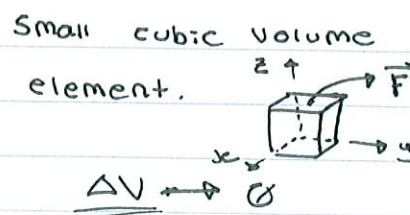 Small cubic volume
element.
z F
x y
ΔV ↔ 0